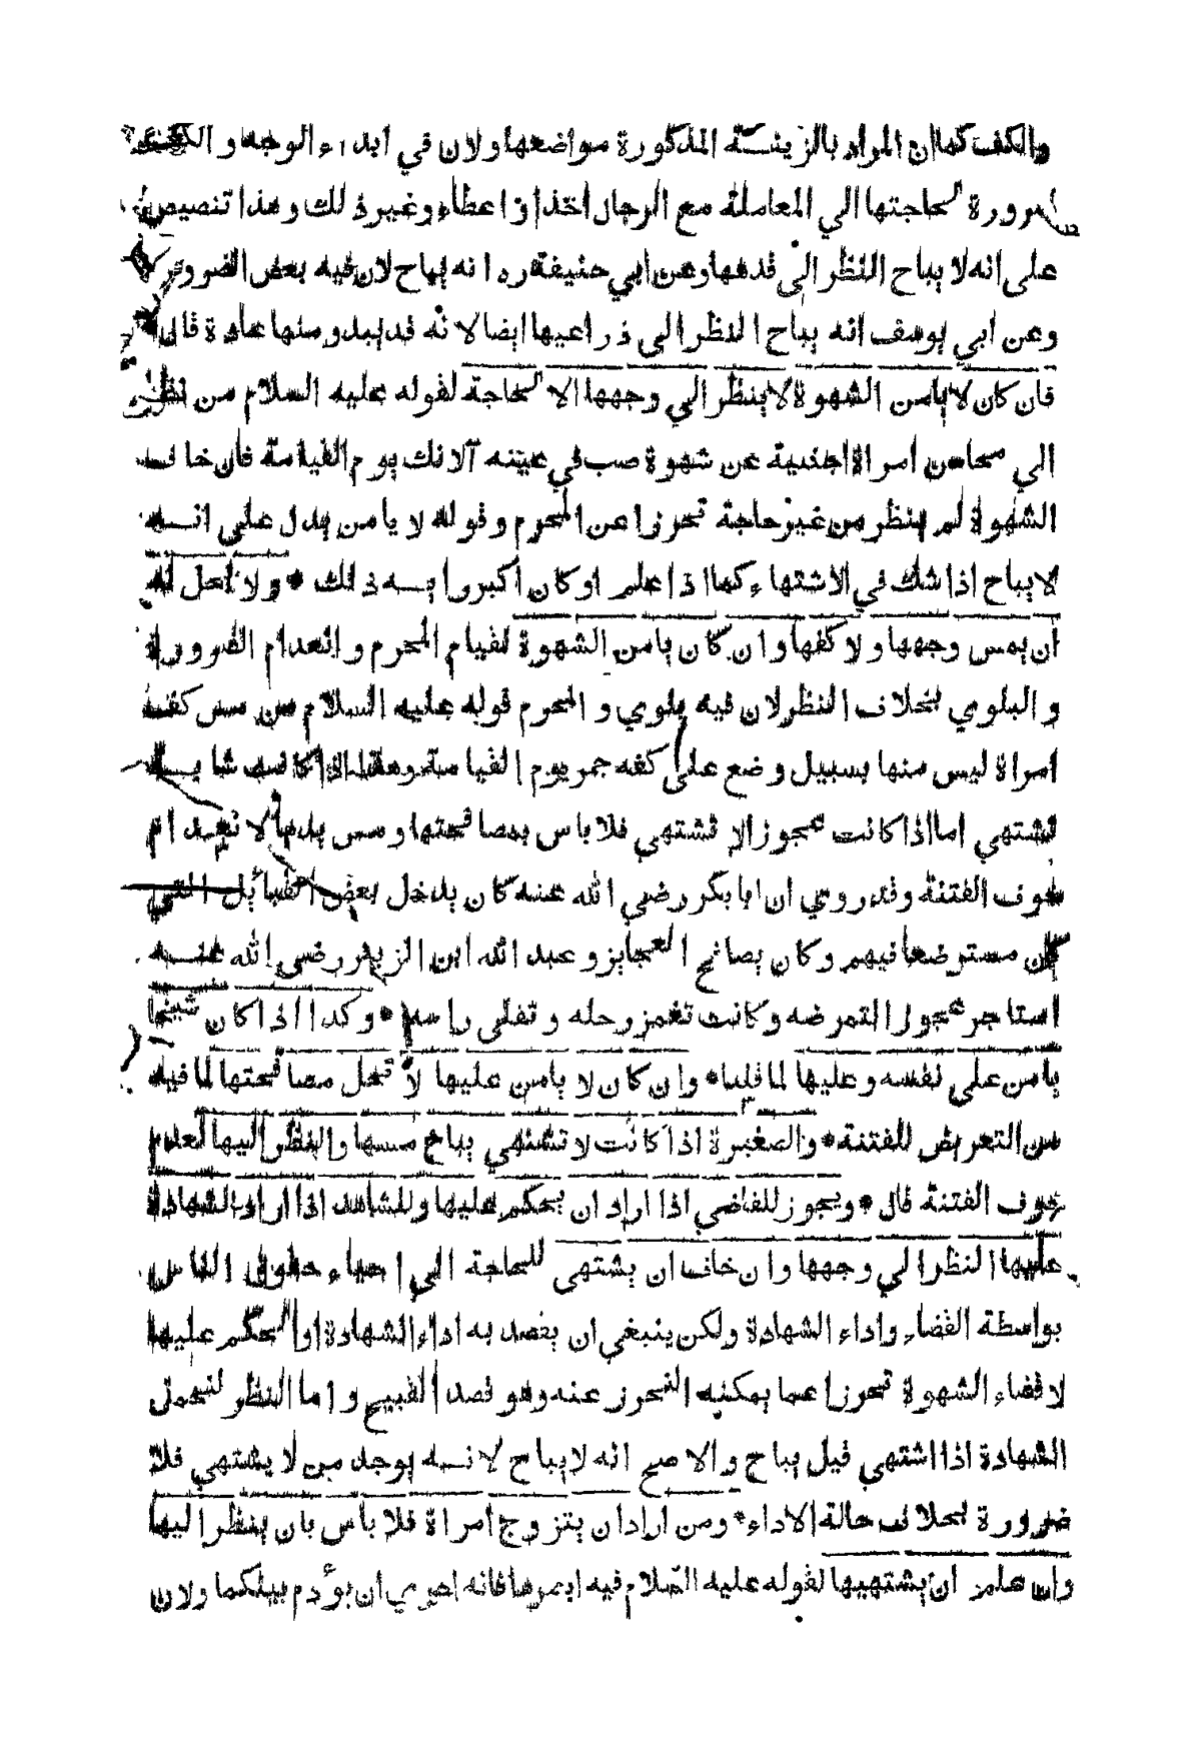 والكف كما ان المراد بالزينة المذكورة مواضعها ولان في ابداء الوجه والكف
ضرورة لحاجتها الي المعاملة مع الرجال اخذا و اعطاء وغير ذلك وهذا تنصيص
علي انه لا يباح النظر الي قدمها وعن ابي حنيفة ره انه يباح لان فيه بعض الضرورة
وعن ابي يوسف انه يباح النظر الي ذراعيها ايضا لانه قد يبدو منها عادة قال
فان كان لا يامن الشهوة لا ينظر الي وجهها الا لحاجة لقوله عليه السلام من نظر
الي محاسن امراة اجنبية عن شهوة صب في عينه آلانك يوم القيامة فان خاف
الشهوة لم ينظر من غير حاجة تحرزا عن المحرم وقوله لا يامن يدل علي انه
لا يباح اذا شك في الاشتهاء كما اذا علم او كان اكبر رايه ذلك * ولا يحل له
ان يمس وجهها ولا كفها وان كان يامن الشهوة لقيام المحرم وانعدام الضرورة
والبلوي بخلاف النظر لان فيه بلوي و المحرم قوله عليه السلام من مس كف
امراة ليس منها بسبيل وضع علي كفه جمر يوم القيامة وهذا اذا كانت شابة
تشتهي اما اذا كانت عجوزا لا تشتهي فلا باس بمصافحتها ومس يدها لانعدام
خوف الفتنة وقد روي ان ابا بكر رضي الله عنه كان يدخل بعض القبائل التي
كان مسترضعا فيهم وكان يصافح العجايز و عبد الله ابن الزبير رضي الله عنه
استاجر عجوزا لتمرضه وكانت تغمز رجله و تفلي راسه * وكذا اذا كان شيخا
يامن علي نفسه و عليها لما قلنا * وان كان لا يامن عليها لا تحل مصافحتها لما فيه
من التعريض للفتنة * والصغيرة اذا كانت لا تشتهي يباح مسها والنظر اليها لعدم
خوف الفتنة قال * ويجوز للقاضي اذا اراد ان يحكم عليها وللشاهد اذا اراد الشهادة
عليها النظر الي وجهها وان خاف ان يشتهي للحاجة الي احياء حقوق الناس
بواسطة القضاء واداء الشهادة ولكن ينبغي ان يقصد به اداء الشهادة او الحكم عليها
لا قضاء الشهوة تحرزا عما يمكنه التحرز عنه وهو قصد القبيح و اما النظر لتحمل
الشهادة اذا اشتهي قيل يباح والاصح انه لا يباح لانه يوجد من لا يشتهي فلا
ضرورة بخلاف حالة الاداء * ومن اراد ان يتزوج امراة فلا باس بان ينظر اليها
وان علم ان يشتهيها لقوله عليه السلام فيه ابصرها فانه احري ان يؤدم بينكما ولان